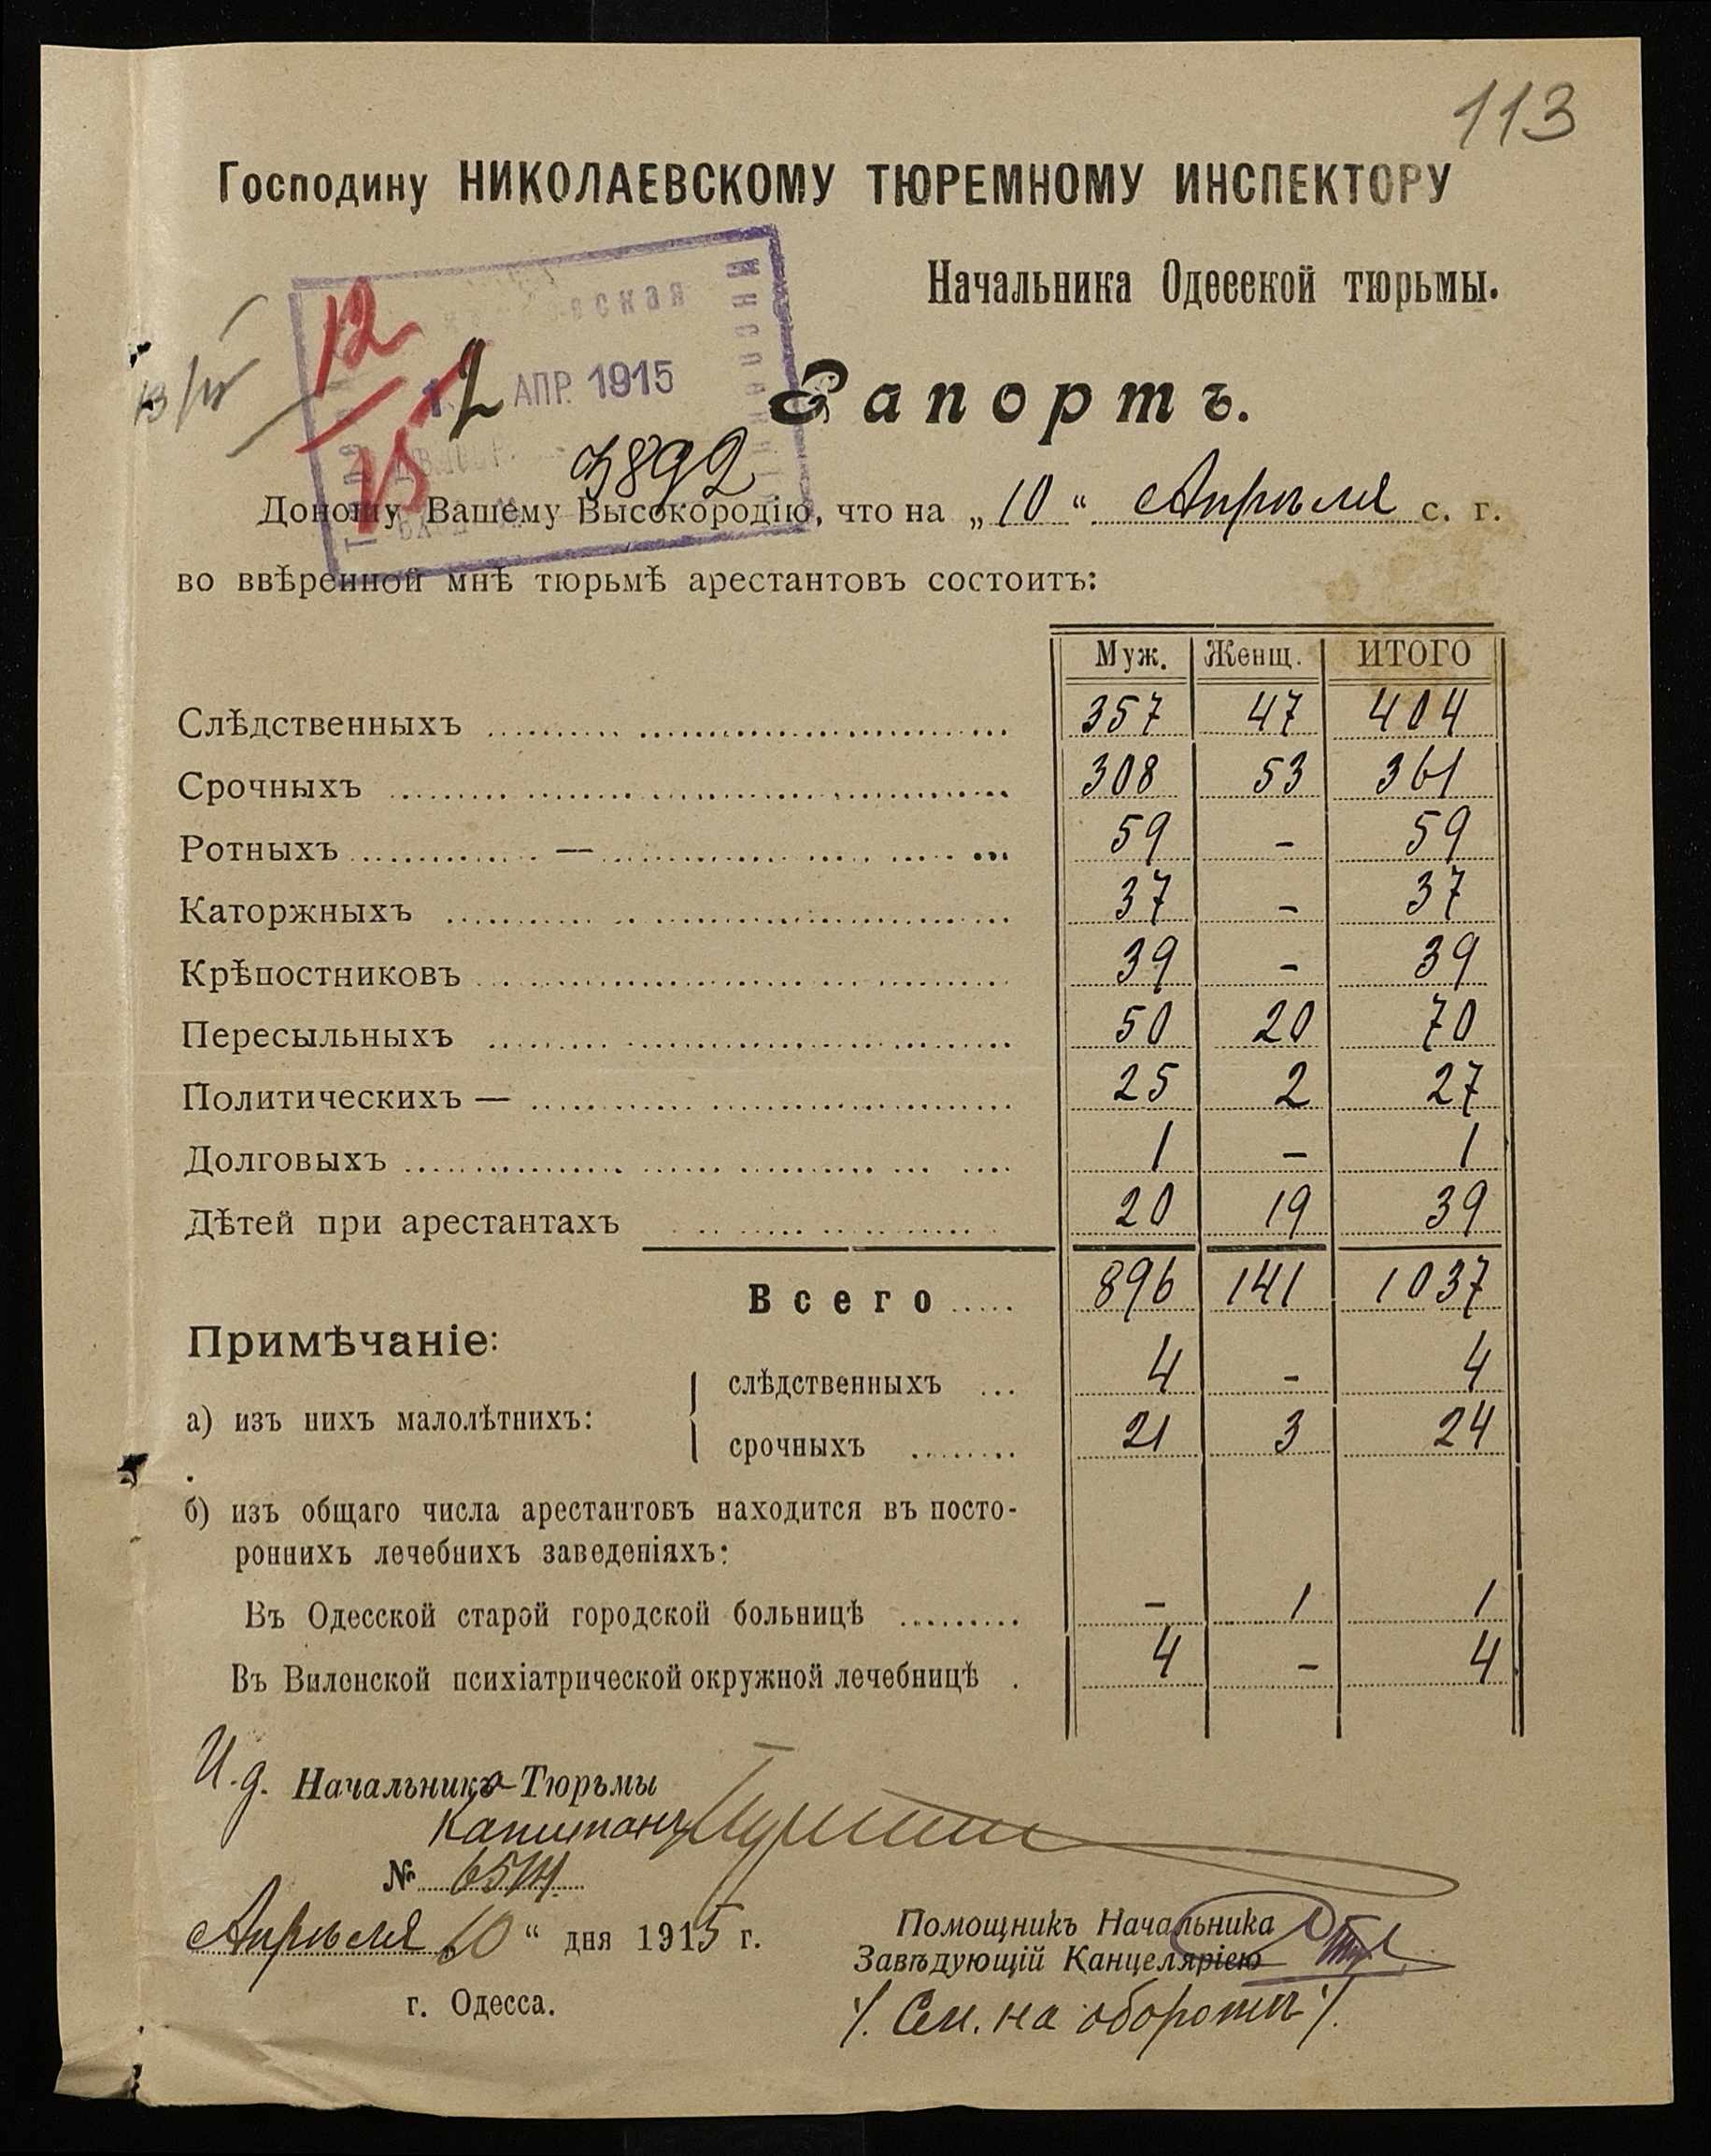 113
Господину НИКОЛАЕВСКОМУ ТЮРЕМНОМУ ИНСПЕКТОРУ
Начальника Одесской тюрьмы.
12
15
12 АПР. 1915
Рапортъ.
3892
Доношу Вашему Высокородію, что на „10“ Апрѣля с. г.
во ввѣренной мнѣ тюрьмѣ арестантовъ состоитъ:
Муж. Женщ. ИТОГО
Слѣдственныхъ 357 47 404
Срочныхъ 308 53 361
Ротныхъ — 59 - 59
Каторжныхъ 37 - 37
Крѣпостниковъ 39 - 39
Пересыльныхъ 50 20 70
Политическихъ — 25 2 27
Долговыхъ 1 - 1
Дѣтей при арестантахъ 20 19 39
Всего 896 141 1037
Примѣчаніе:
а) изъ нихъ малолѣтнихъ:
слѣдственныхъ 4 - 4
срочныхъ 21 3 24
б) изъ общаго числа арестантовъ находится въ посто-
роннихъ лечебнихъ заведеніяхъ:
Въ Одесской старой городской больницѣ - 1 1
Въ Виленской психіатрической окружной лечебницѣ 4 - 4
И.д. Начальника Тюрьмы
Капитанъ
№
Апрѣля 10 “ дня 1915 г.
г. Одесса.
Помощникъ Начальника
Завѣдующій Канцеляріею
/. См. на оборотѣ /.